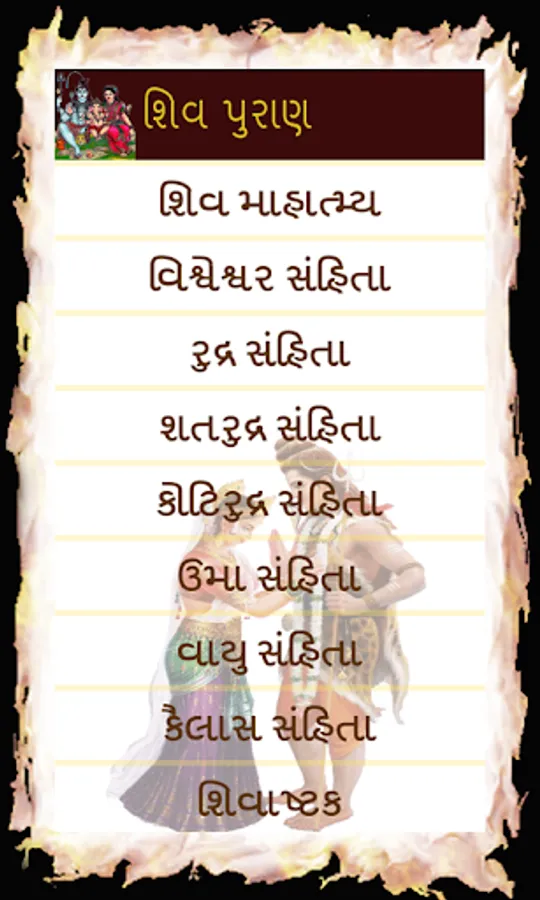 શિવ પુરાણ
શિવ માહાત્મ્ય
વિશ્વેશ્વર સંહિતા
રુદ્ર સંહિતા
શતરુદ્ર સંહિતા
કોટિરુદ્ર સંહિતા
ઉમા સંહિતા
વાયુ સંહિતા
કૈલાસ સંહિતા
શિવાષ્ટક